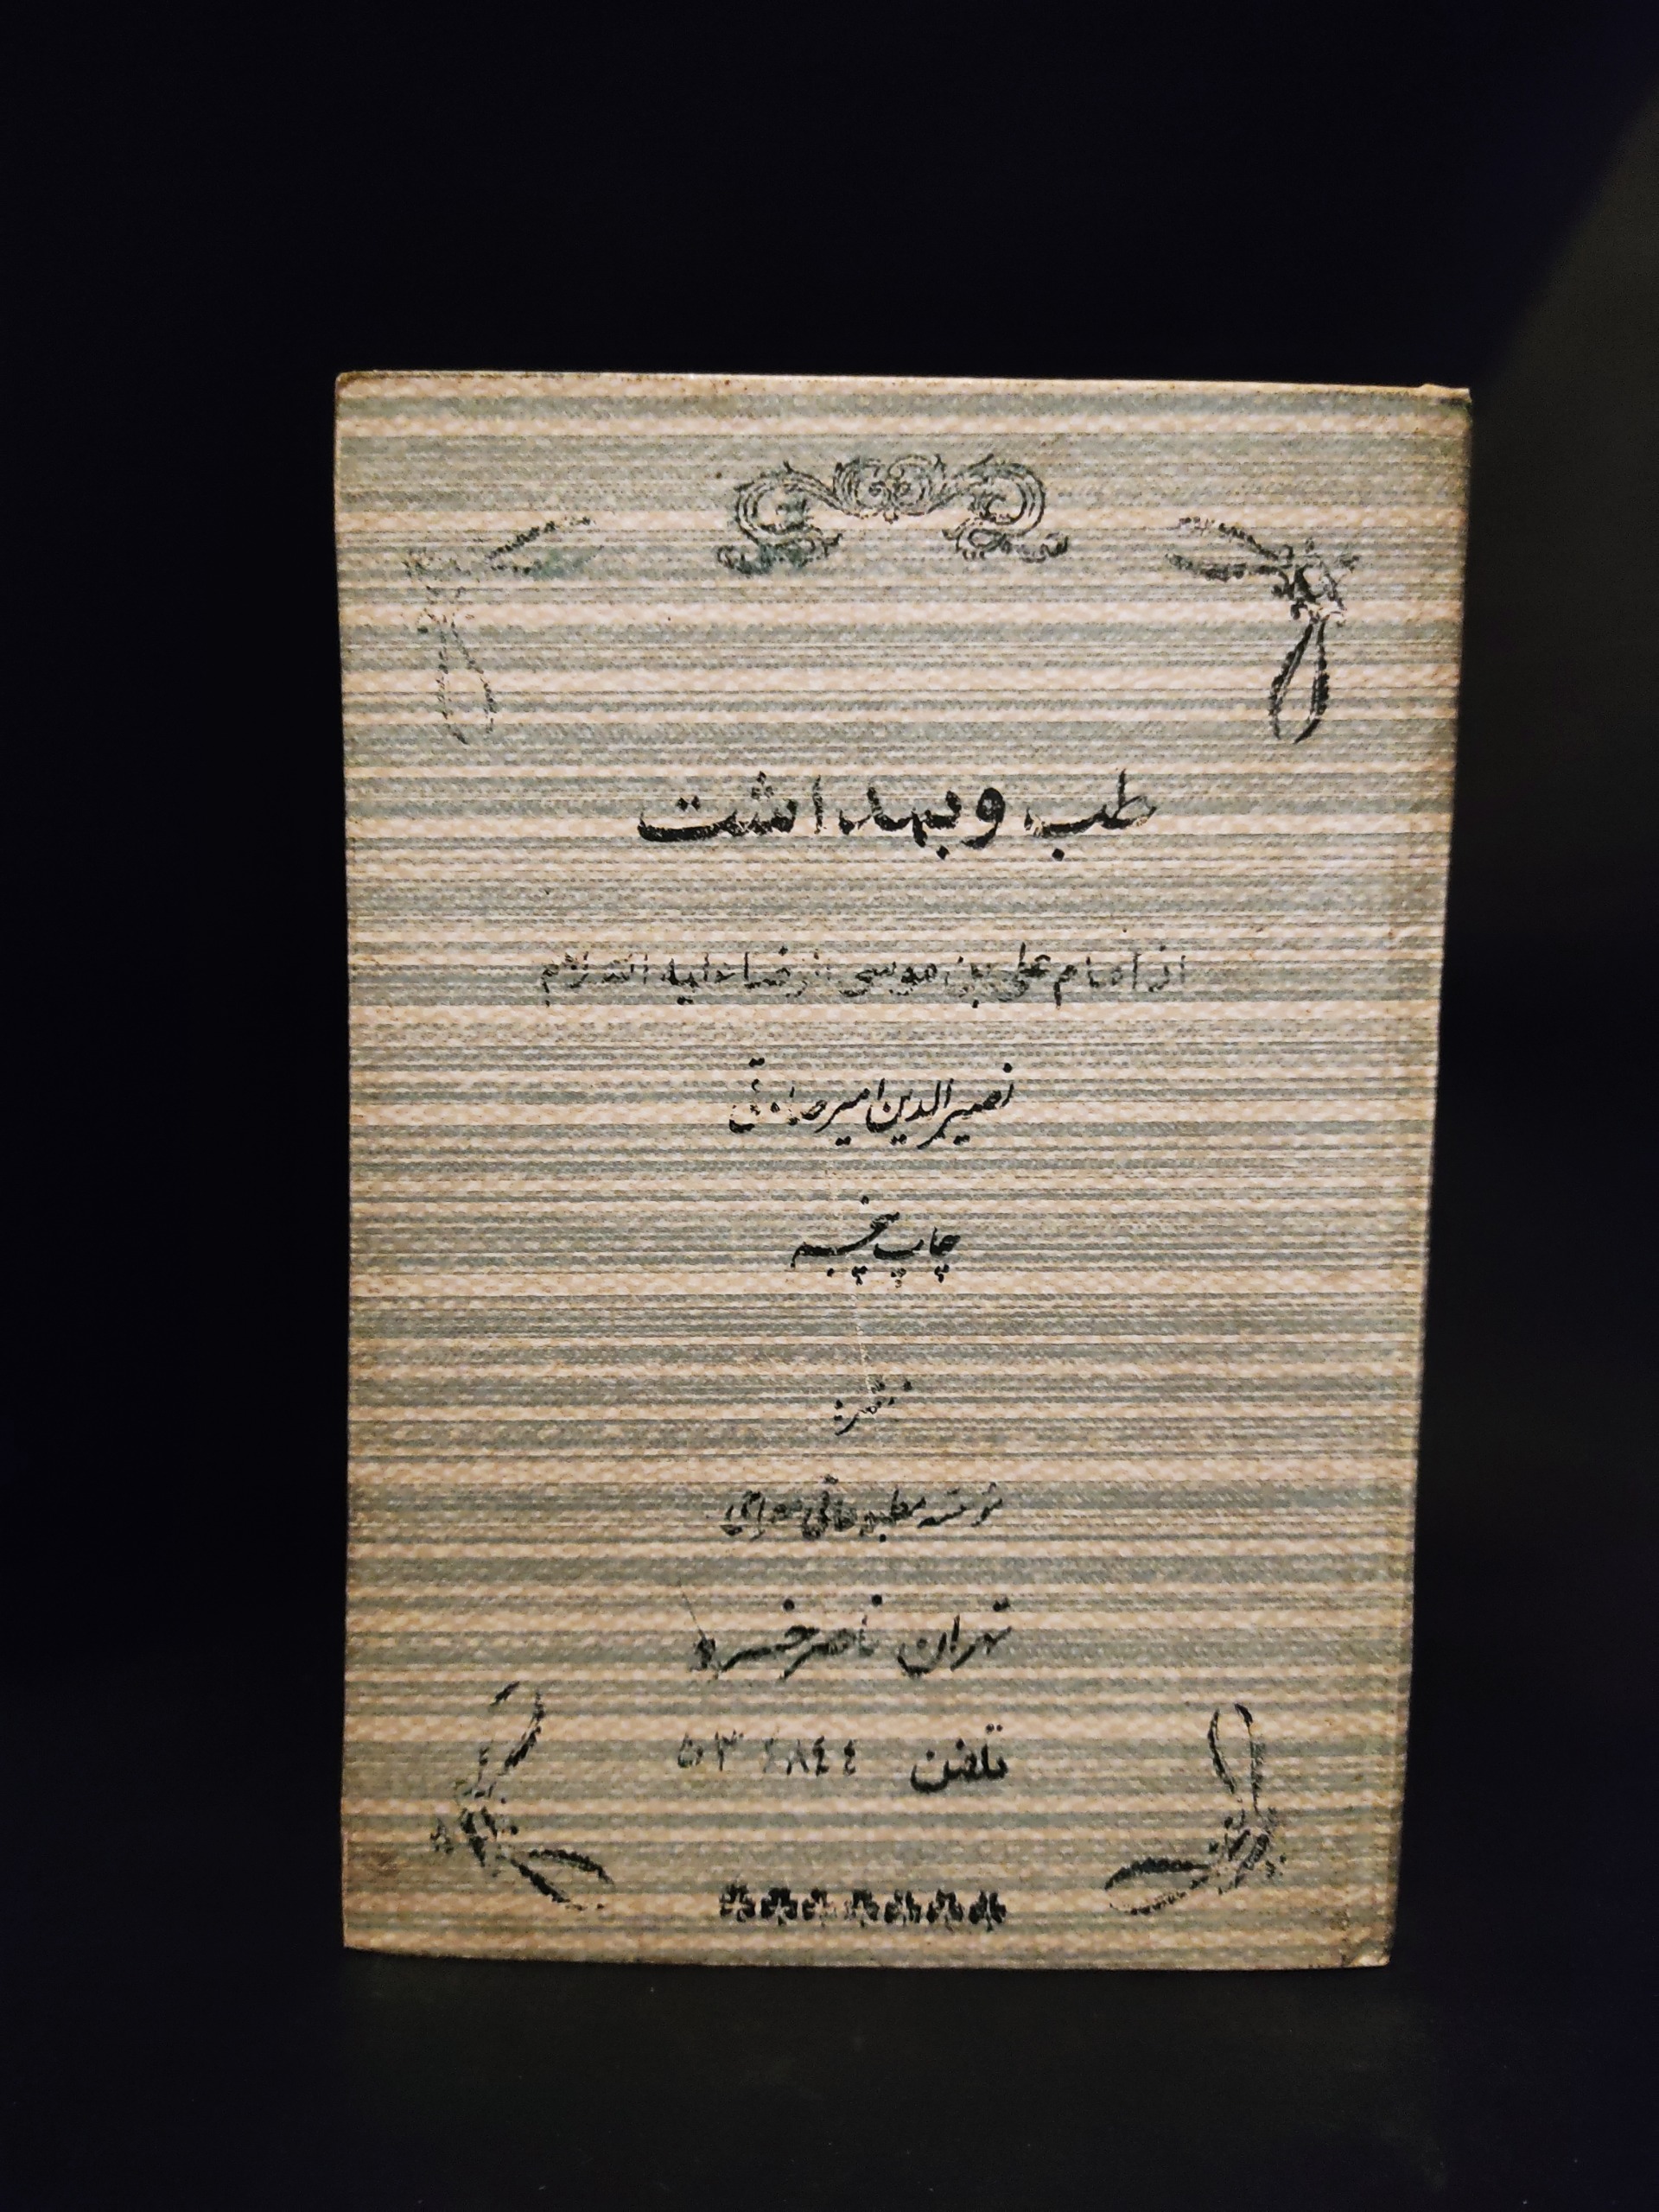 طب و بهداشت
از امام علی بن موسی الرضا علیه السلام
نصیرالدین امیرصادقی
چاپ پنجم
ناشر:
مؤسسه مطبوعاتی معراجی
تهران ناصرخسرو
تلفن